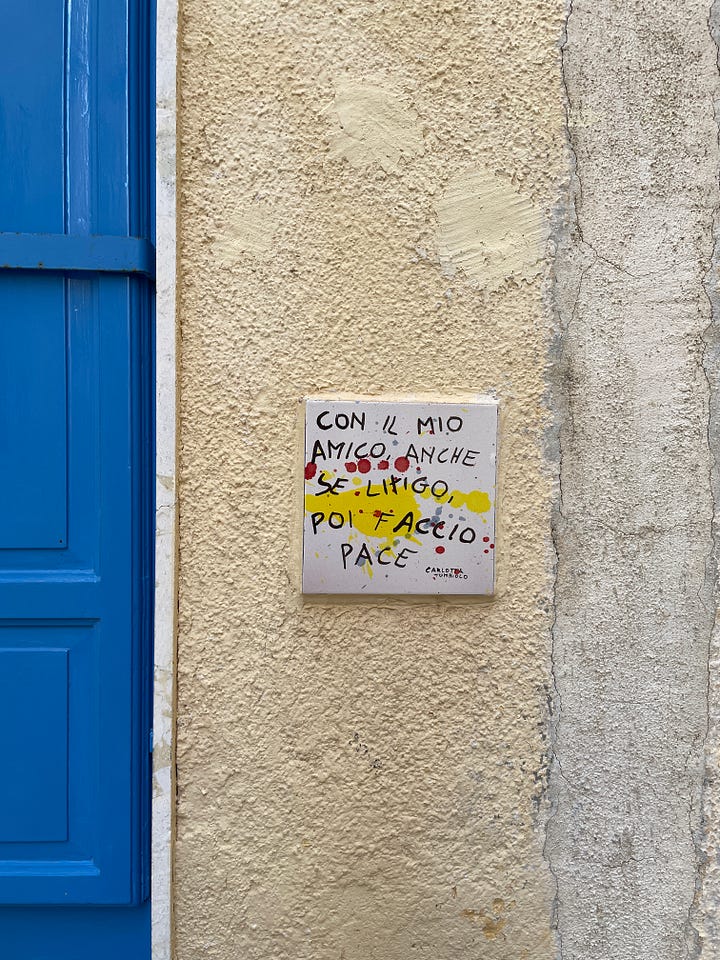 CON IL MIO
AMICO, ANCHE
SE LITIGO,
POI FACCIO
PACE
CARLOTTA